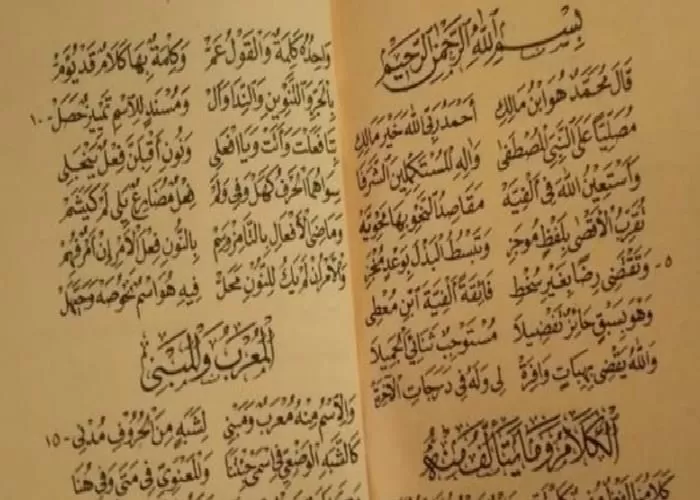 بِسْمِ اللهِ الرَّحْمٰنِ الرَّحِيْمِ
قَالَ مُحَمَّدٌ هُوَ ابْنُ مَالِكِ أَحْمَدُ رَبِّي اللهَ خَيْرَ مَالِكِ
مُصَلِّيًا عَلَى النَّبِيِّ الْمُصْطَفَى وَآلِهِ الْمُسْتَكْمِلِينَ الشَّرَفَا
وَأَسْتَعِينُ اللهَ فِي أَلْفِيَّهْ مَقَاصِدُ النَّحْوِ بِهَا مَحْوِيَّهْ
تُقَرِّبُ الْأَقْصَى بِلَفْظٍ مُوجَزِ وَتَبْسُطُ الْبَذْلَ بِوَعْدٍ مُنْجَزِ
٥- وَتَقْتَضِي رِضًا بِغَيْرِ سُخْطِ فَائِقَةً أَلْفِيَّةَ ابْنِ مُعْطِي
وَهُوَ بِسَبْقٍ حَائِزٌ تَفْضِيلَا مُسْتَوْجِبٌ ثَنَائِيَ الْجَمِيلَا
وَاللهُ يَقْضِي بِهِبَاتٍ وَافِرَهْ لِي وَلَهُ فِي دَرَجَاتِ الْآخِرَهْ
الْكَلَامُ وَمَا يَتَأَلَّفُ مِنْهُ
كَلَامُنَا
وَاحِدُهُ كَلِمَةٌ وَالْقَوْلُ عَمْ وَكِلْمَةٌ بِهَا كَلَامٌ قَدْ يُؤَمْ
بِالْجَرِّ وَالتَّنْوِينِ وَالنِّدَا وَأَلْ وَمُسْنَدٍ لِلِاسْمِ تَمْيِيزٌ حَصَلْ -١٠
بِتَا فَعَلْتَ وَأَتَتْ وَيَا افْعَلِي وَنُونِ أَقْبِلَنَّ فِعْلٌ يَنْجَلِي
سِوَاهُمَا الْحَرْفُ كَهَلْ وَفِي وَلَمْ فِعْلٌ مُضَارِعٌ يَلِي لَمْ كَيَشَمْ
وَمَاضِيَ الْأَفْعَالِ بِالتَّا مِزْ وَسِمْ بِالنُّونِ فِعْلَ الْأَمْرِ إِنْ أَمْرٌ فُهِمْ
وَالْأَمْرُ إِنْ لَمْ يَكُ لِلنُّونِ مَحَلْ فِيهِ هُوَ اسْمٌ نَحْوُ صَهْ وَحَيَّهَلْ
الْمُعْرَبُ وَالْمَبْنِي
وَالِاسْمُ مِنْهُ مُعْرَبٌ وَمَبْنِي لِشَبَهٍ مِنَ الْحُرُوفِ مُدْنِي -١٥
كَالشَّبَهِ الْوَضْعِيِّ فِي اسْمَيْ جِئْتَنَا وَالْمَعْنَوِيِّ فِي مَتَى وَفِي هُنَا